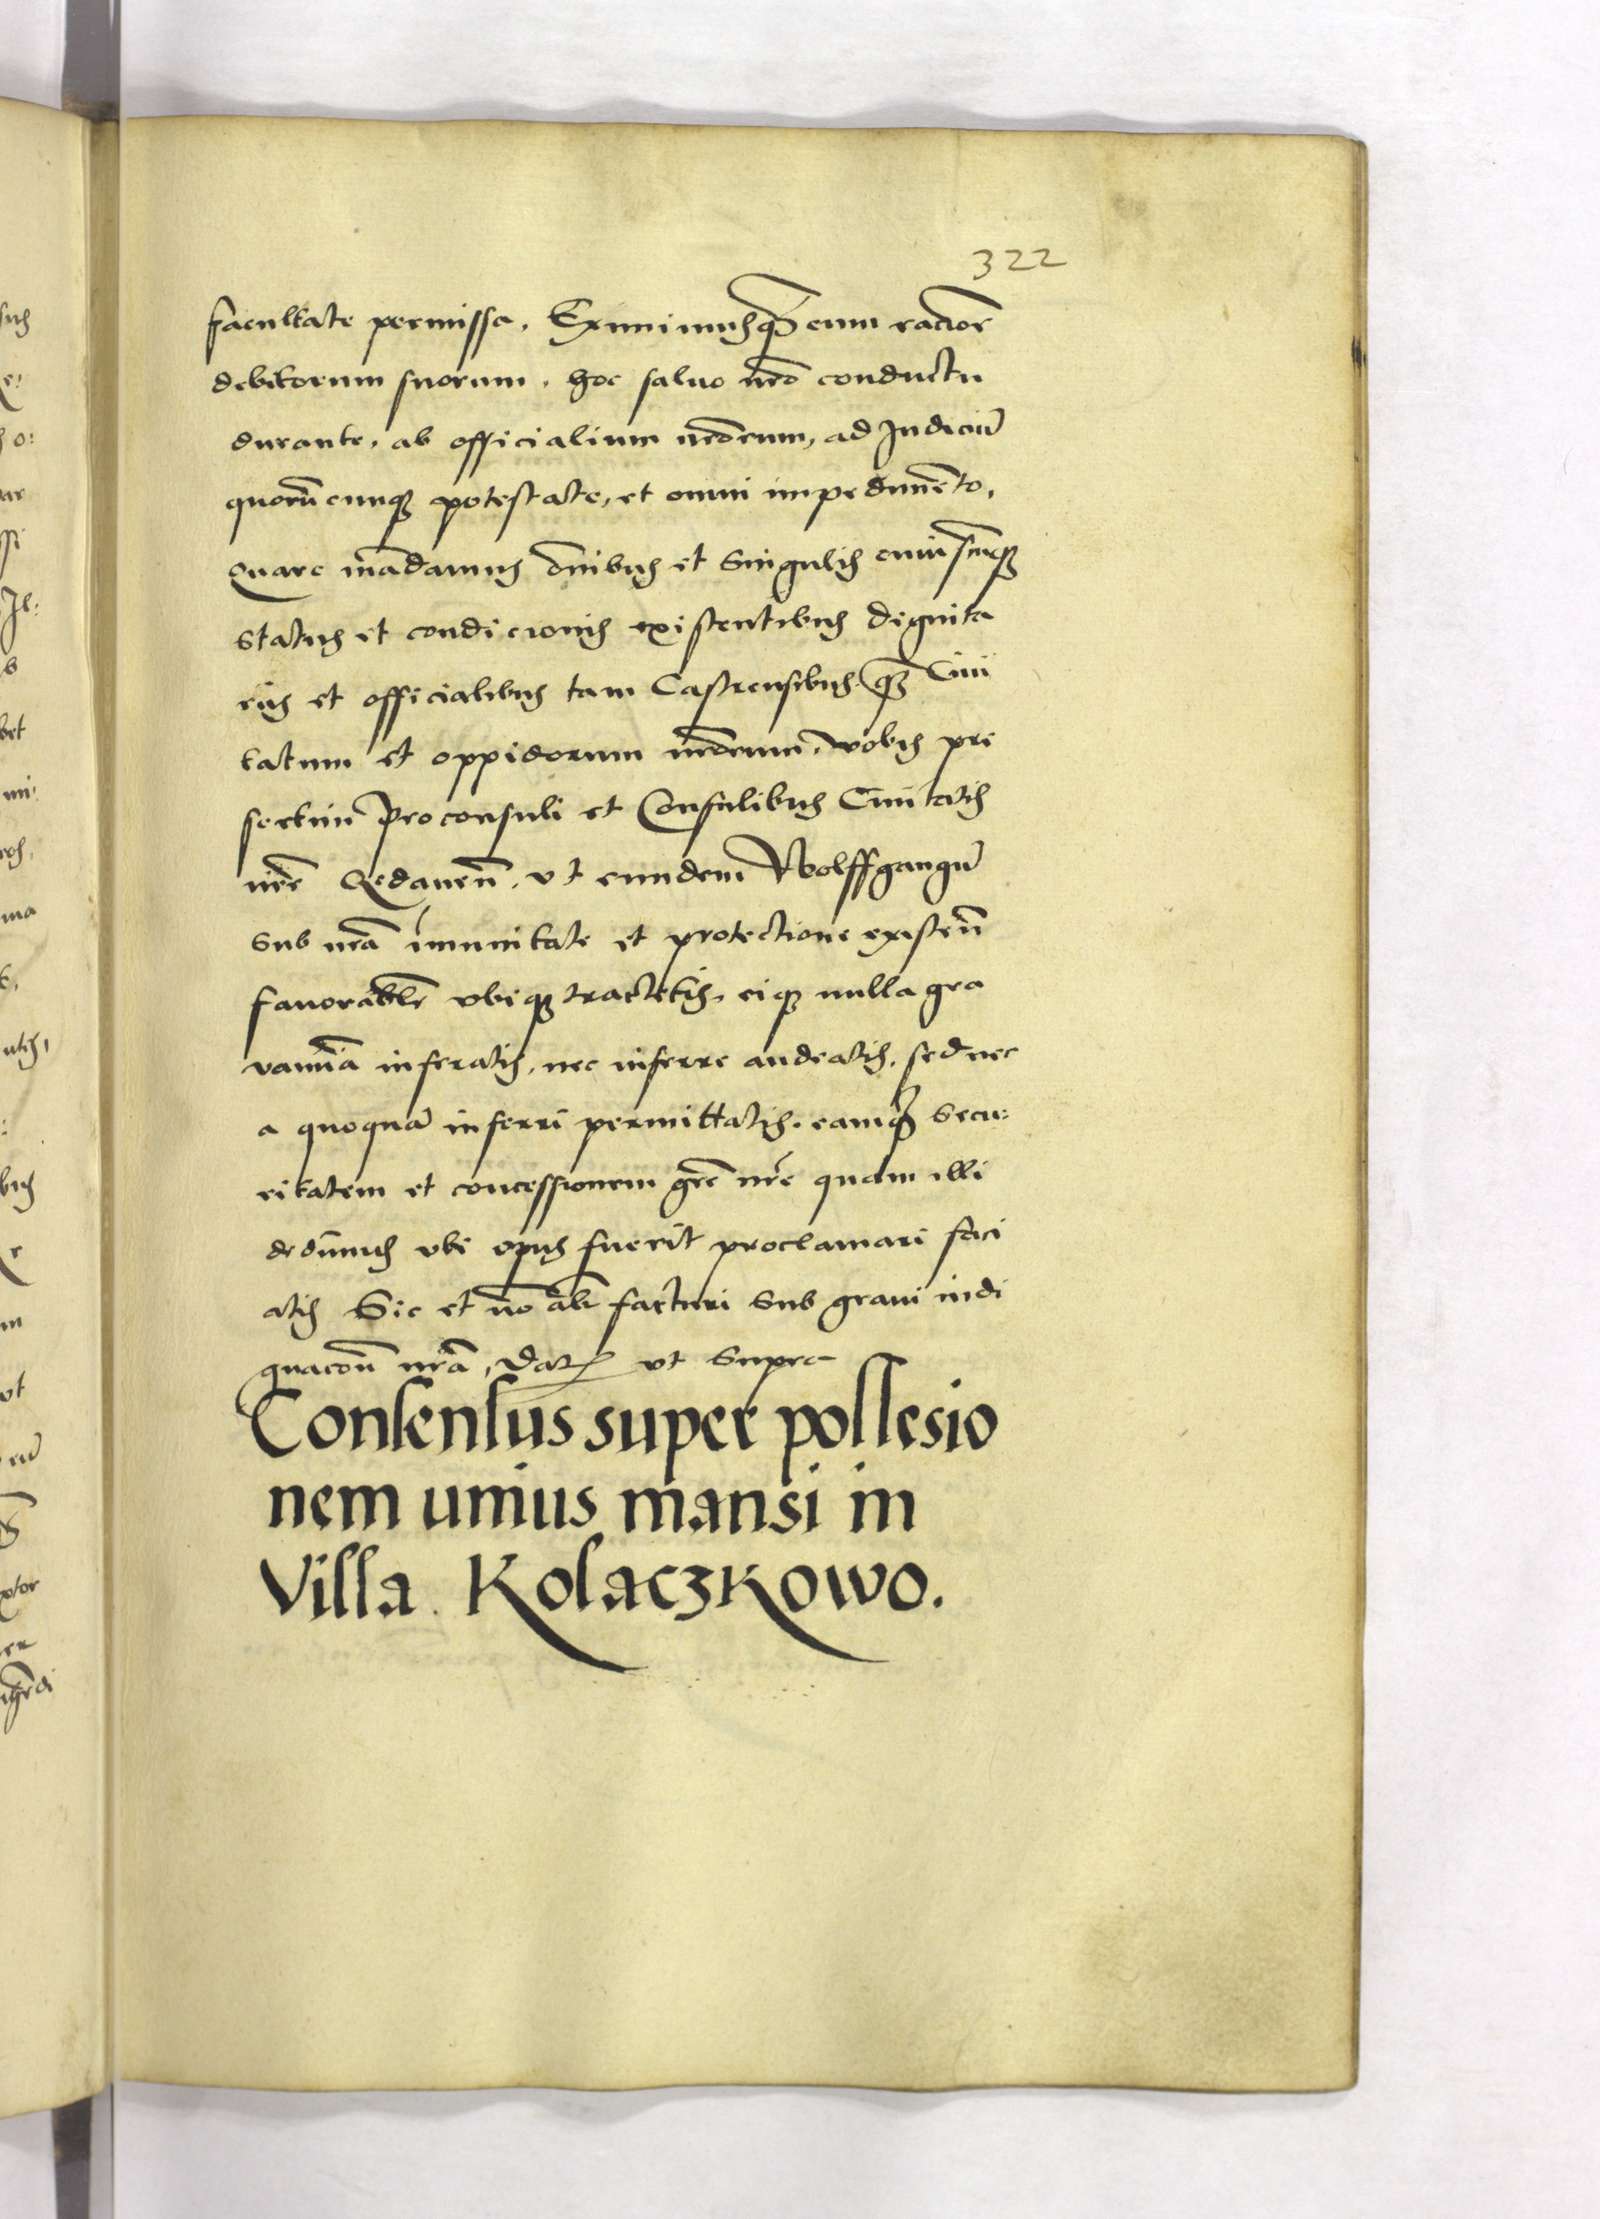 322
facultate permissa. Eximimusq̃ eum racioñ
debitorum suorum, hoc saluo nr̃o conductu
durante, ab officialium nr̃orum, ad Judiciũ
quorũcunq; potestate, et omni impedimẽto,
Quare mãdamus õnibus et singulis cuiuscũq;
status et condicionis existentibus dignita
rijs et officialibus tam Castrensibus q̃ Ciui
tatum et oppidorum nr̃orum, vobis pre
sertim Proconsuli et Consulibus Ciuitatis
nr̃e Gedaneñ, vt eundem Wolffgangũ
sub nr̃a ĩmunitate et protectione existeñ
fauorabilr̃ vbiq; tractetis, eiq; nulla gra
vamĩa inferatis, nec inferre audeatis, sed nec
a quoquã inferri permittatis. eamq̃ secu:
ritatem et concessionem gr̃e nr̃e quam illi
dedimus vbi opus fuerit proclamari faci
atis Sic et nõ alr̃ facturi sub graui indi
gnacõn nr̃a, Dat vt supra
Consensus super possesio
nem unius mansi in
Villa Kolaczkowo.